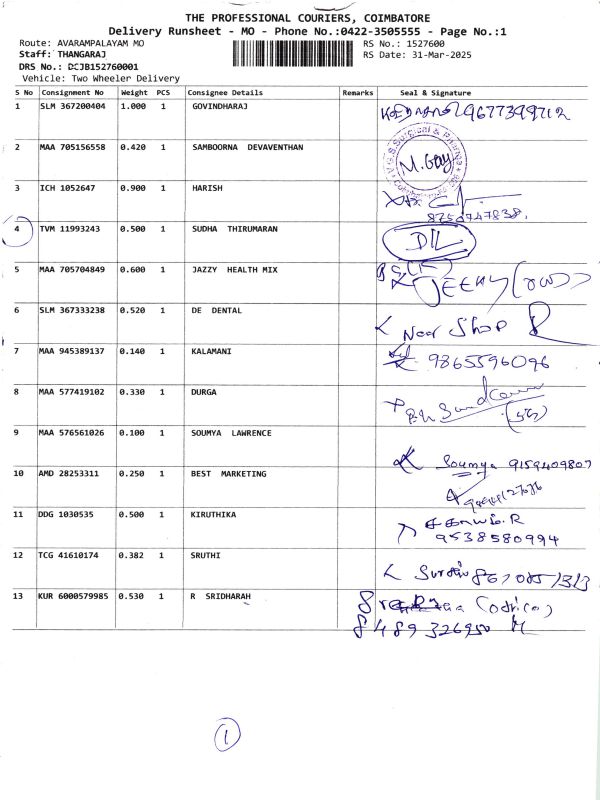 THE PROFESSIONAL COURIERS, COIMBATORE
Delivery Runsheet - MO - Phone No.:0422-3505555 - Page No.:1
Route: AVARAMPALAYAM MO RS No.: 1527600
Staff: THANGARAJ RS Date: 31-Mar-2025
DRS No.: DCJB152760001
Vehicle: Two Wheeler Delivery
S No Consignment No Weight PCS Consignee Details Remarks Seal & Signature
1 SLM 367200404 1.000 1 GOVINDHARAJ 9677399712
2 MAA 705156558 0.420 1 SAMBOORNA DEVAVENTHAN
3 ICH 1052647 0.900 1 HARISH
8750747838.
4 TVM 11993243 0.500 1 SUDHA THIRUMARAN DIL
5 MAA 705704849 0.600 1 JAZZY HEALTH MIX
6 SLM 367333238 0.520 1 DE DENTAL Near Shop
7 MAA 945389137 0.140 1 KALAMANI 9865596096
8 MAA 577419102 0.330 1 DURGA
9 MAA 576561026 0.100 1 SOUMYA LAWRENCE Soumya 9159409807
10 AMD 28253311 0.250 1 BEST MARKETING
11 DDG 1030535 0.500 1 KIRUTHIKA
9538580994
12 TCG 41610174 0.382 1 SRUTHI
13 KUR 6000579985 0.530 1 R SRIDHARAH
8489326950
1